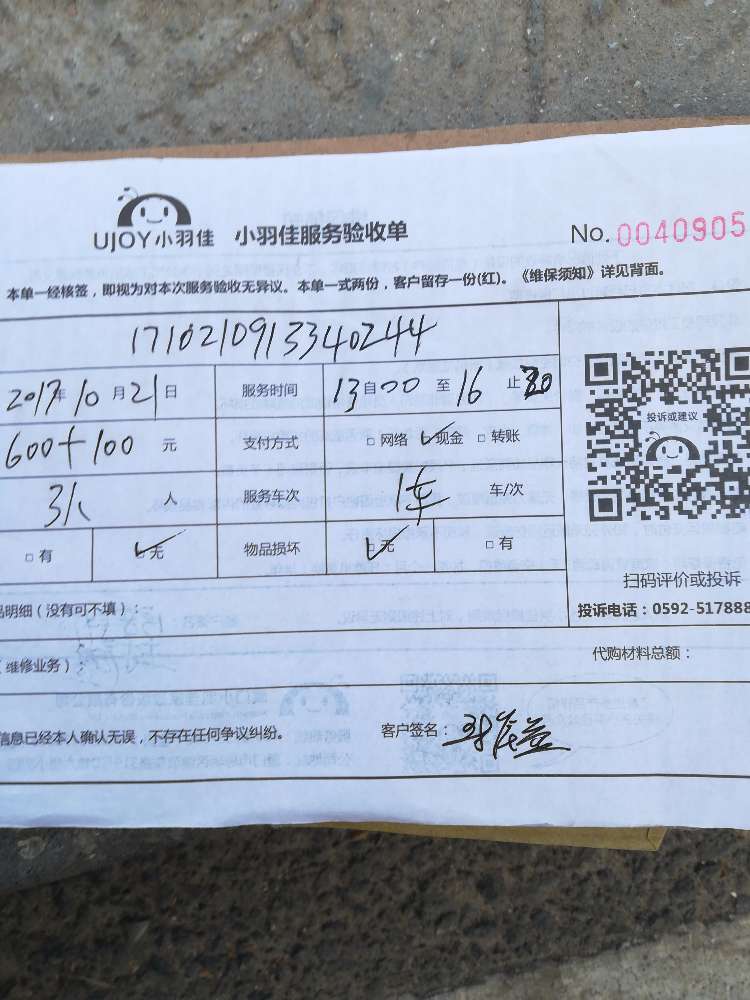 UJOY小羽佳 小羽佳服务验收单 No. 0040905
本单一经核签,即视为对本次服务验收无异议。本单一式两份,客户留存一份(红)。《维保须知》详见背面。
171021091334024４
2017年10月21日 服务时间 13自00至16止30
600+100元 支付方式 □网络 ☑现金 □转账
投诉或建议
3人 人 服务车次 1车 车/次
□有 ☑无 物品损坏 ☑无 □有
扫码评价或投诉
品明细(没有可不填): 投诉电话:0592-517888
(维修业务): 代购材料总额:
信息已经本人确认无误,不存在任何争议纠纷。 客户签名: